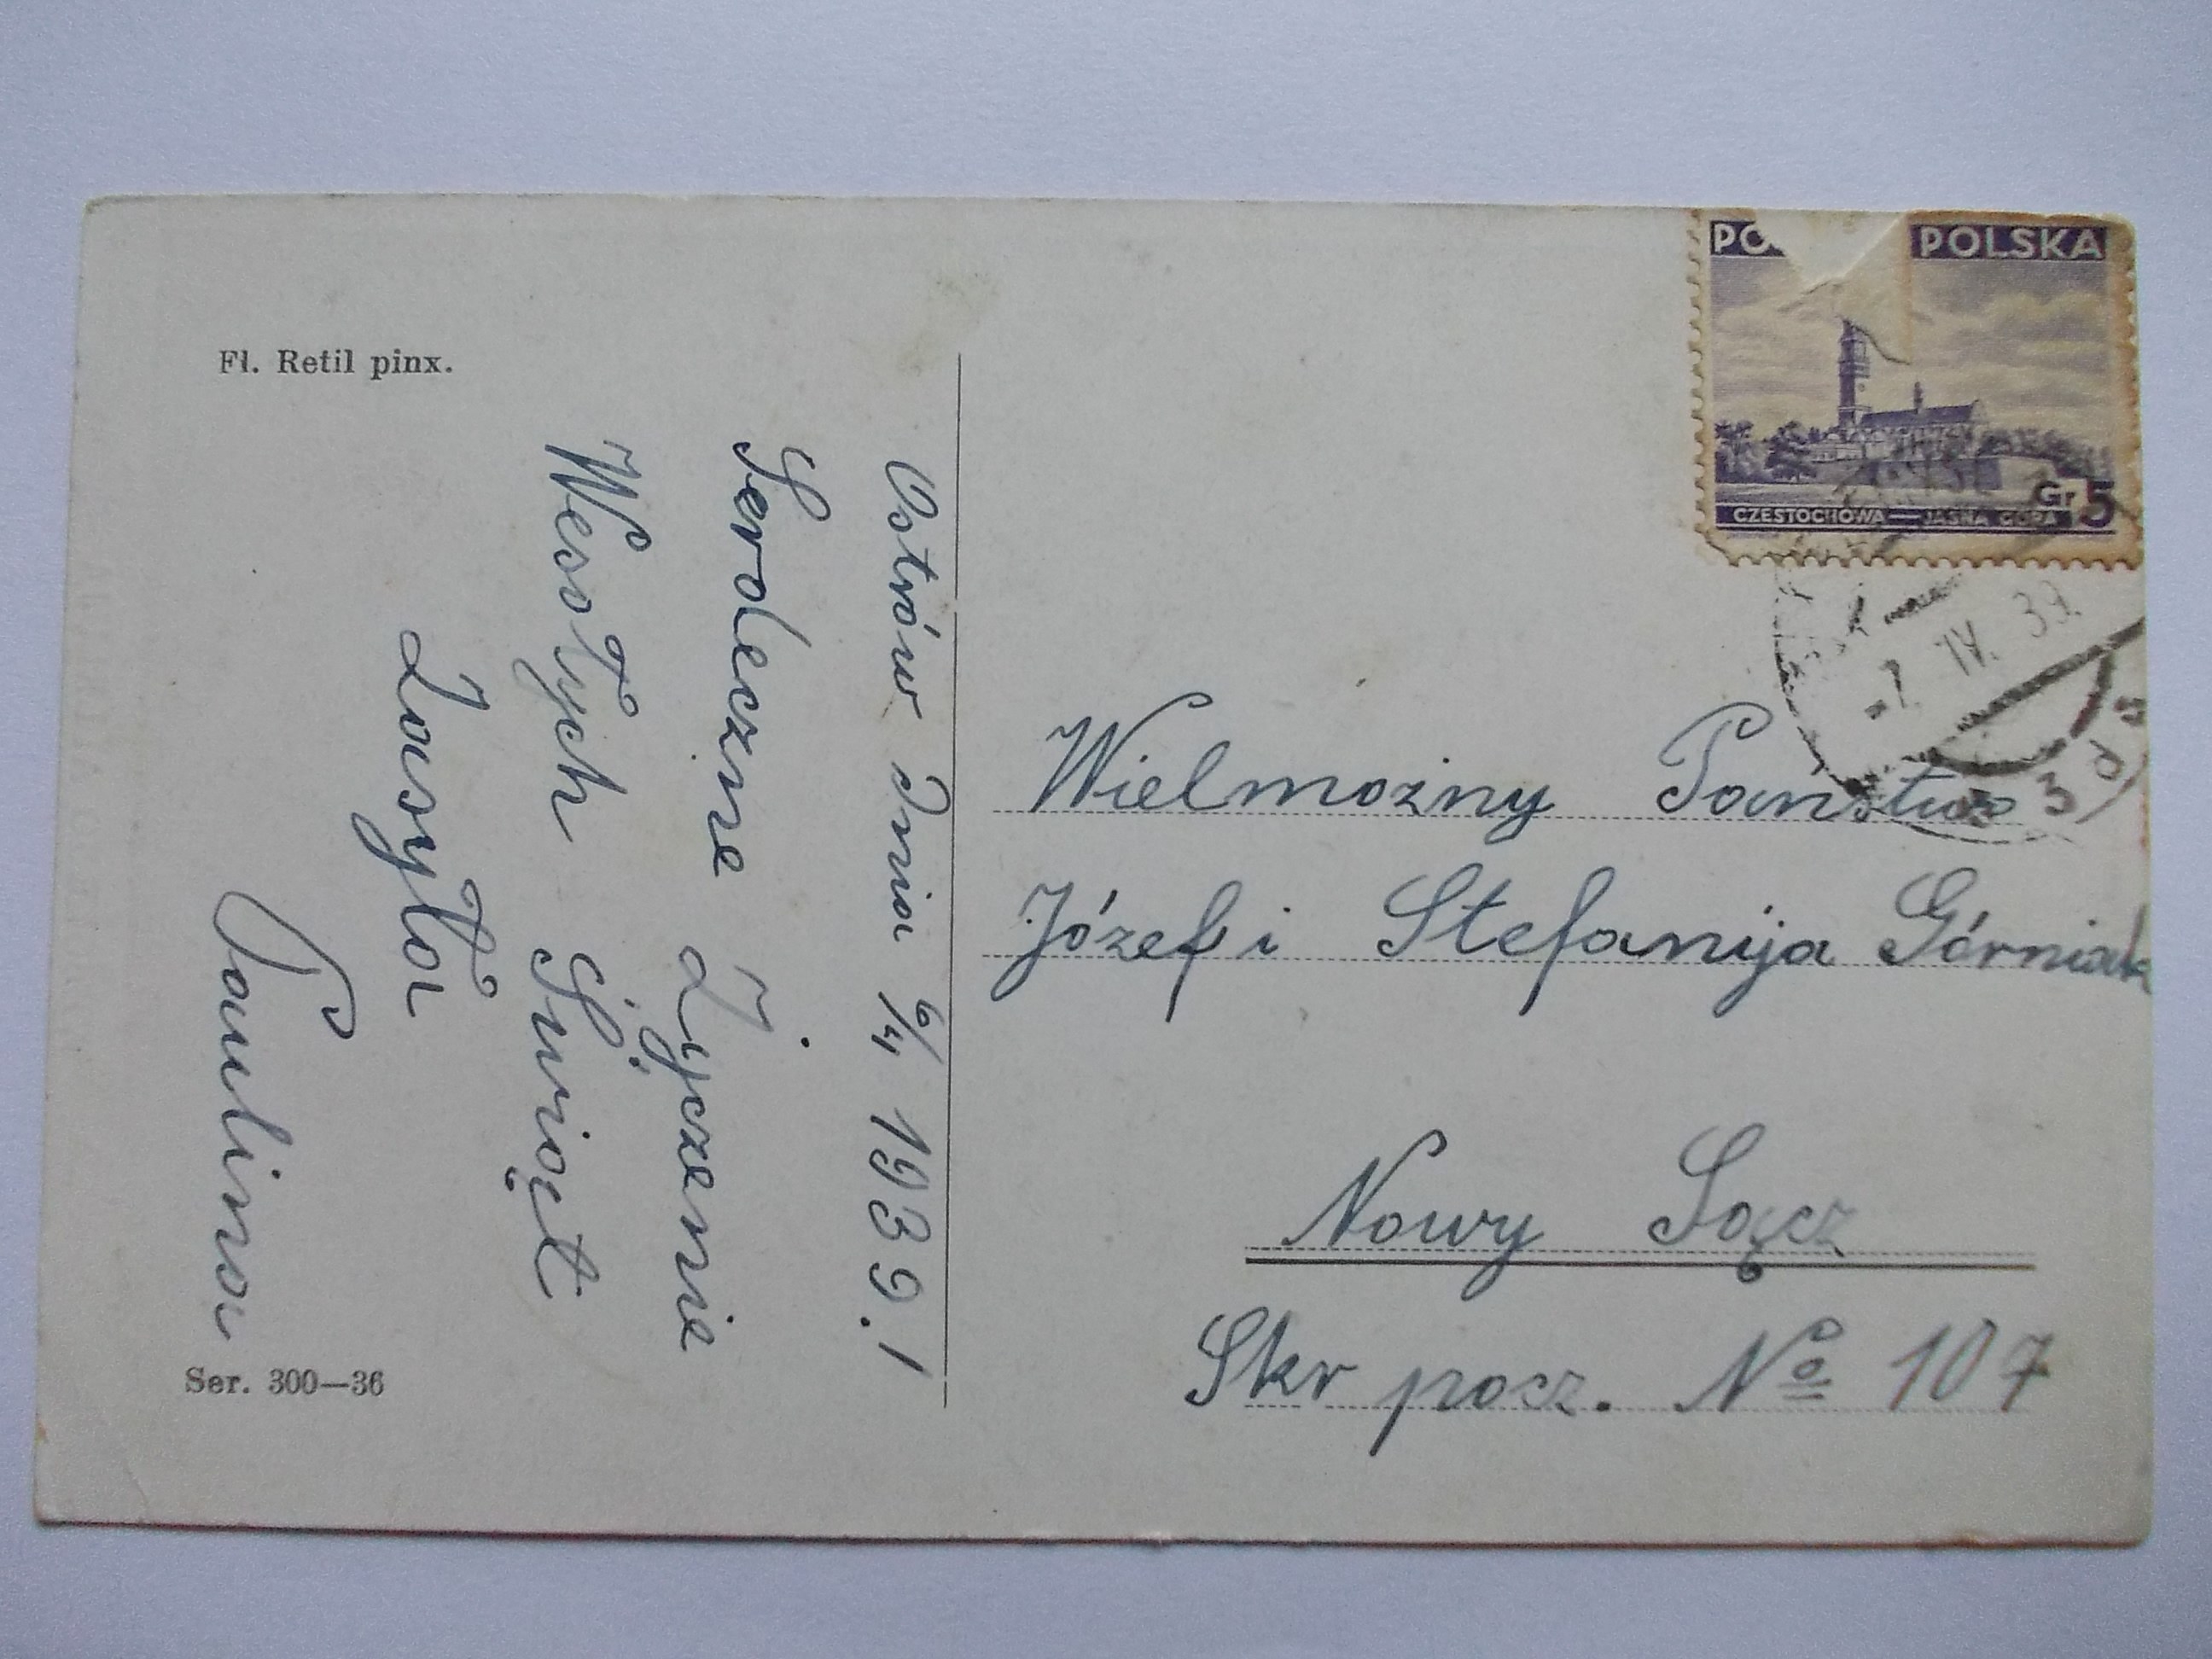 Fl. Retil pinx.
Ostrów dnia 6/4 1939.r
Serdeczne Życzenie
Wesołych Świąt
Zasyła
Paulina
Ser. 300—36
POLSKA
Gr 5
CZĘSTOCHOWA — JASNA GÓRA
-7. IV. 39.
Wielmożny Państwo
Józef i Stefanija Górniak
Nowy Sącz
Skr pocz. No 107